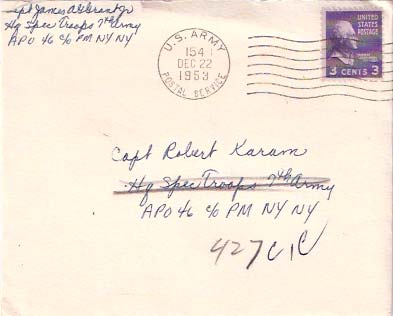 Capt James A Grant Jr
Hq Spec Troops 7th Army
APO 46 c/o PM NY NY
U.S. ARMY
154
DEC 22
1953
POSTAL SERVICE
UNITED
STATES
POSTAGE
3 CENTS 3
Capt Robert Karam
Hq Spec Troops 7th Army
APO 46 c/o PM NY NY
427 CIC